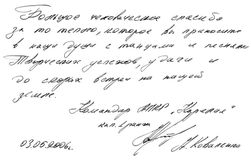 Большое человеческое спасибо
за то тепло, которое вы приносите
в наши души с танцами и песнями
Творческих успехов, удачи и
до скорых встреч на нашей
земле.
Командир "Карелия"
кап. 1 ранга
03.05.2006г. Коваленко